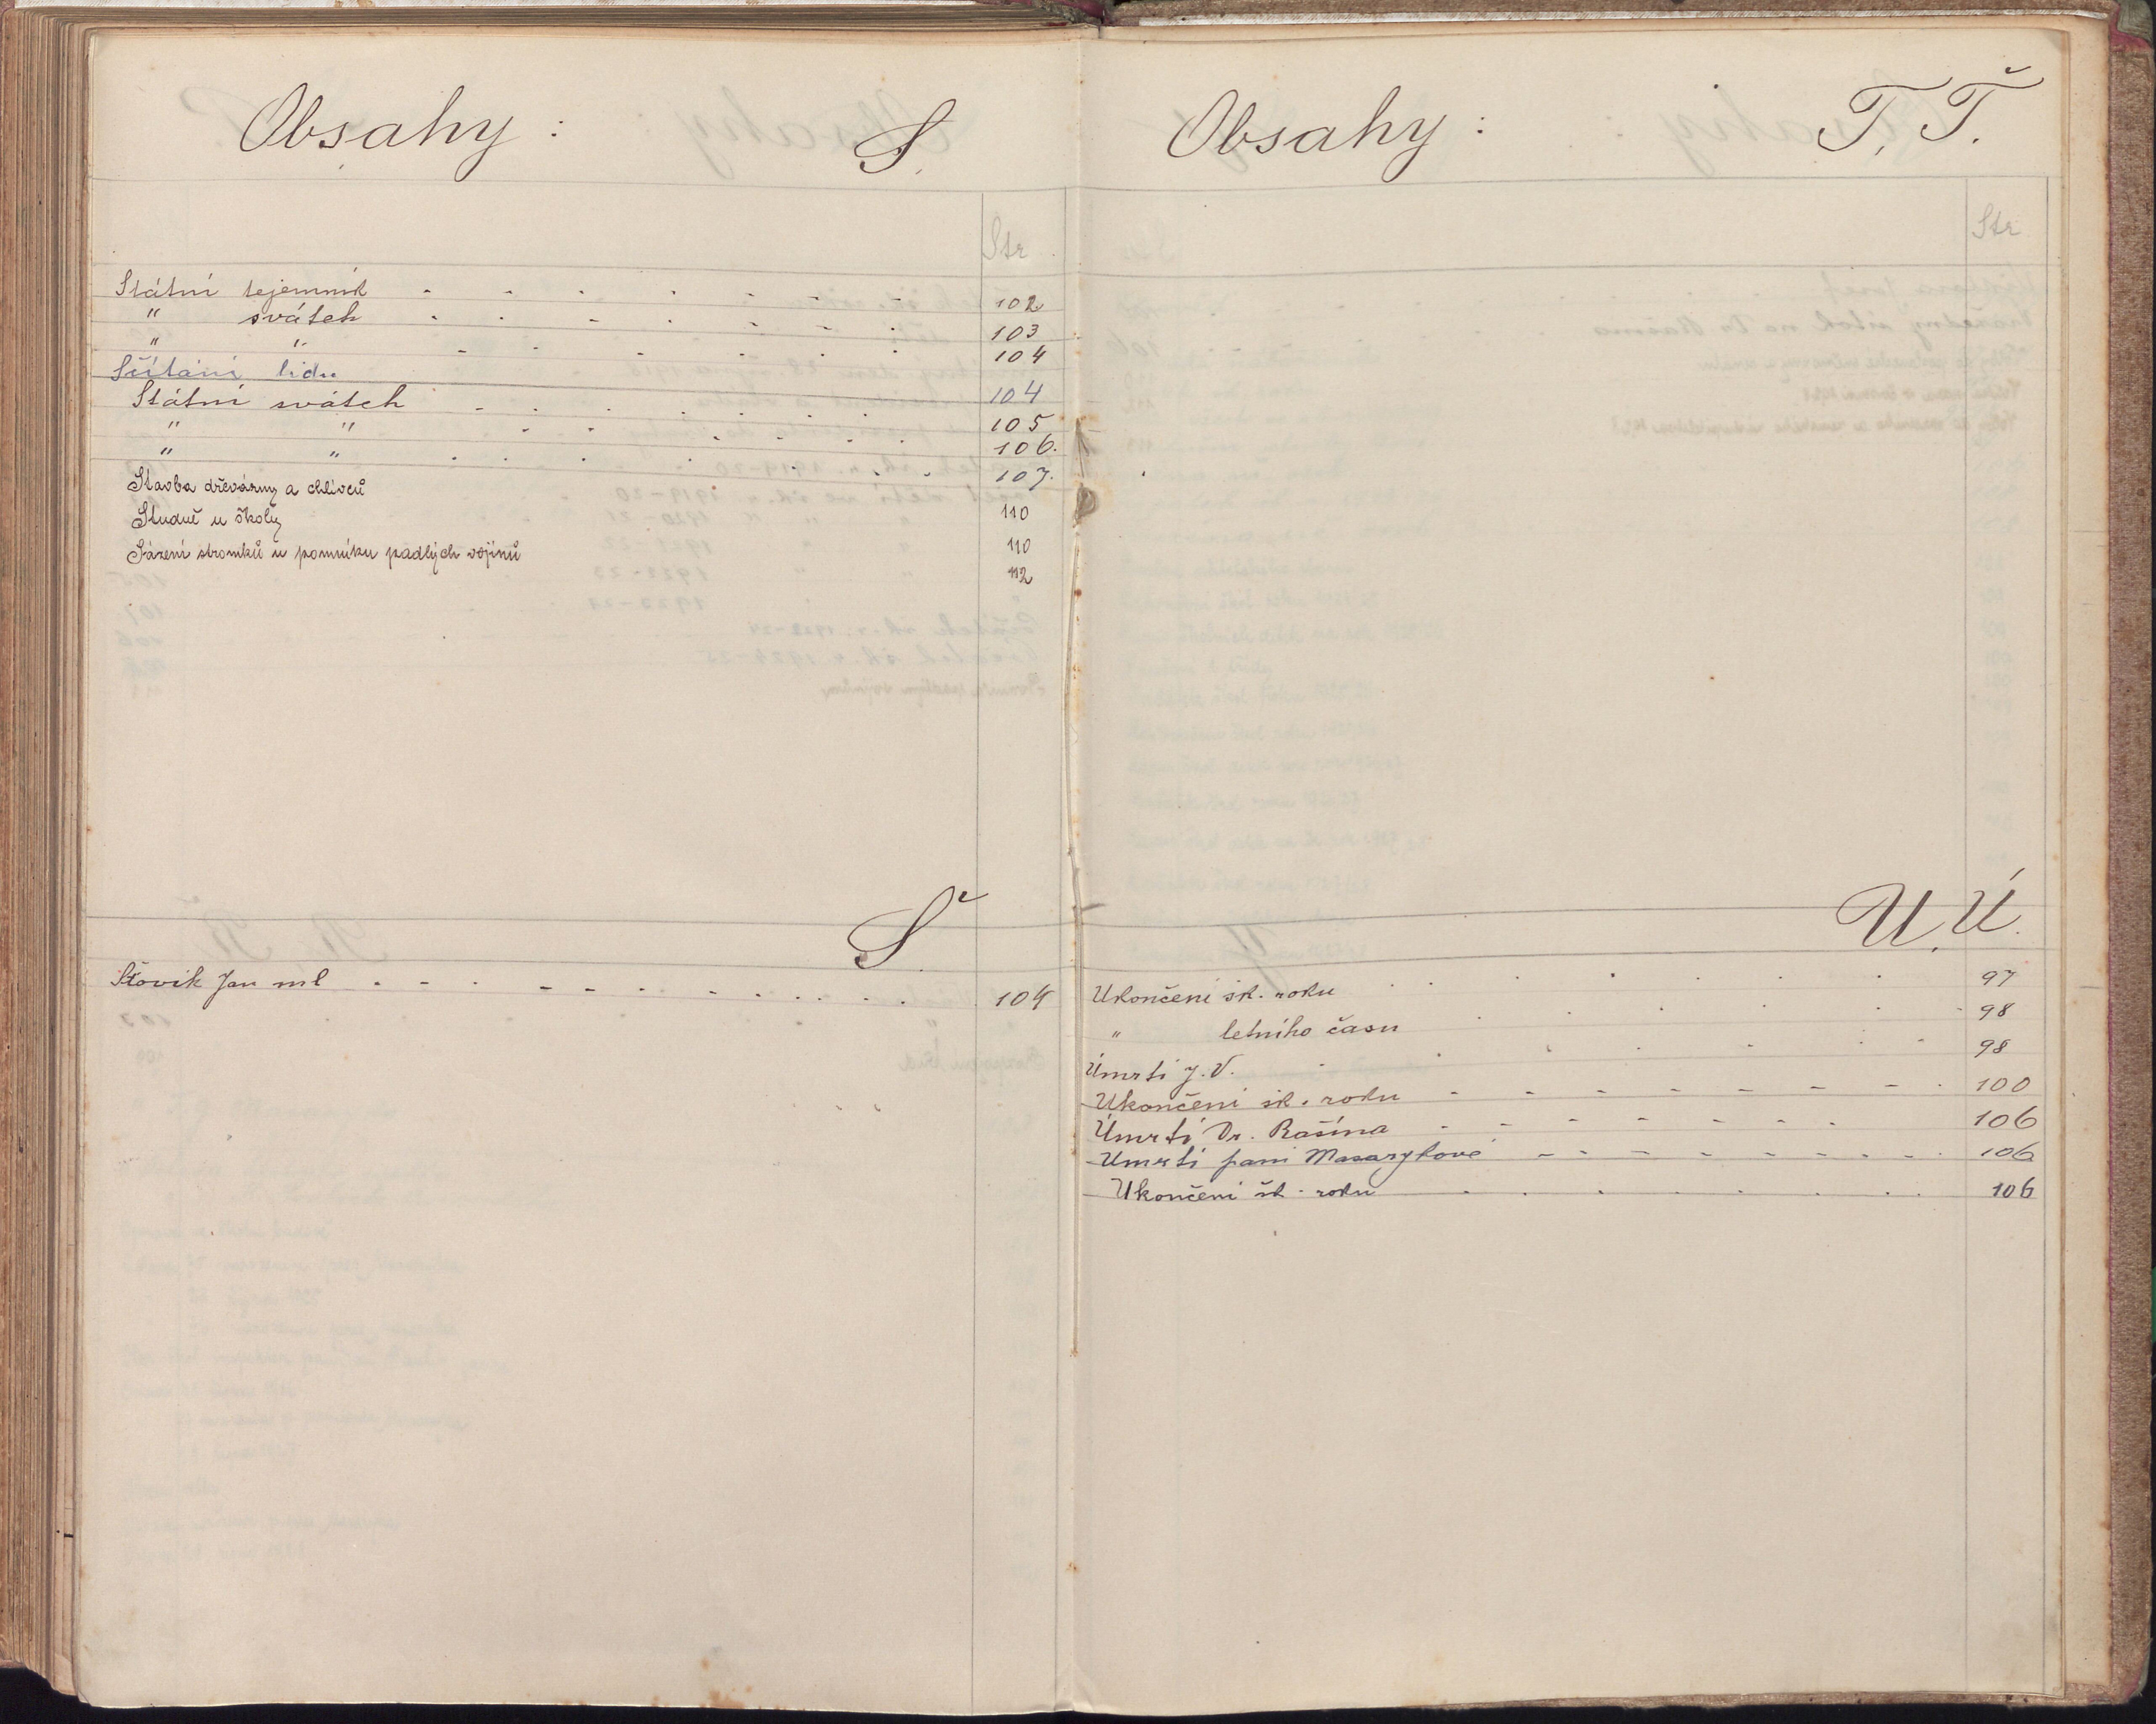 Obsahy : S.
Str
Státní tejemník 102
" svátek 103
" " 104
Sčítání lidu 104
Státní svátek 105
" " 106.
" " 107.
Stavba dřevárny a chlívců
Studně u školy 110
Sázení stromků u pomníku padlých vojínů 110
112
Š
Jan ml 104
Obsahy : T, Ť.
Str
U. Ú.
Ukončení šk. roku 97
" letního času 98
Úmrtí J. V. 98
Ukončení šk. roku 100
Úmrtí Dr. Rašína 106
Umrtí paní Masarykové 106
Ukončení šk. roku 106